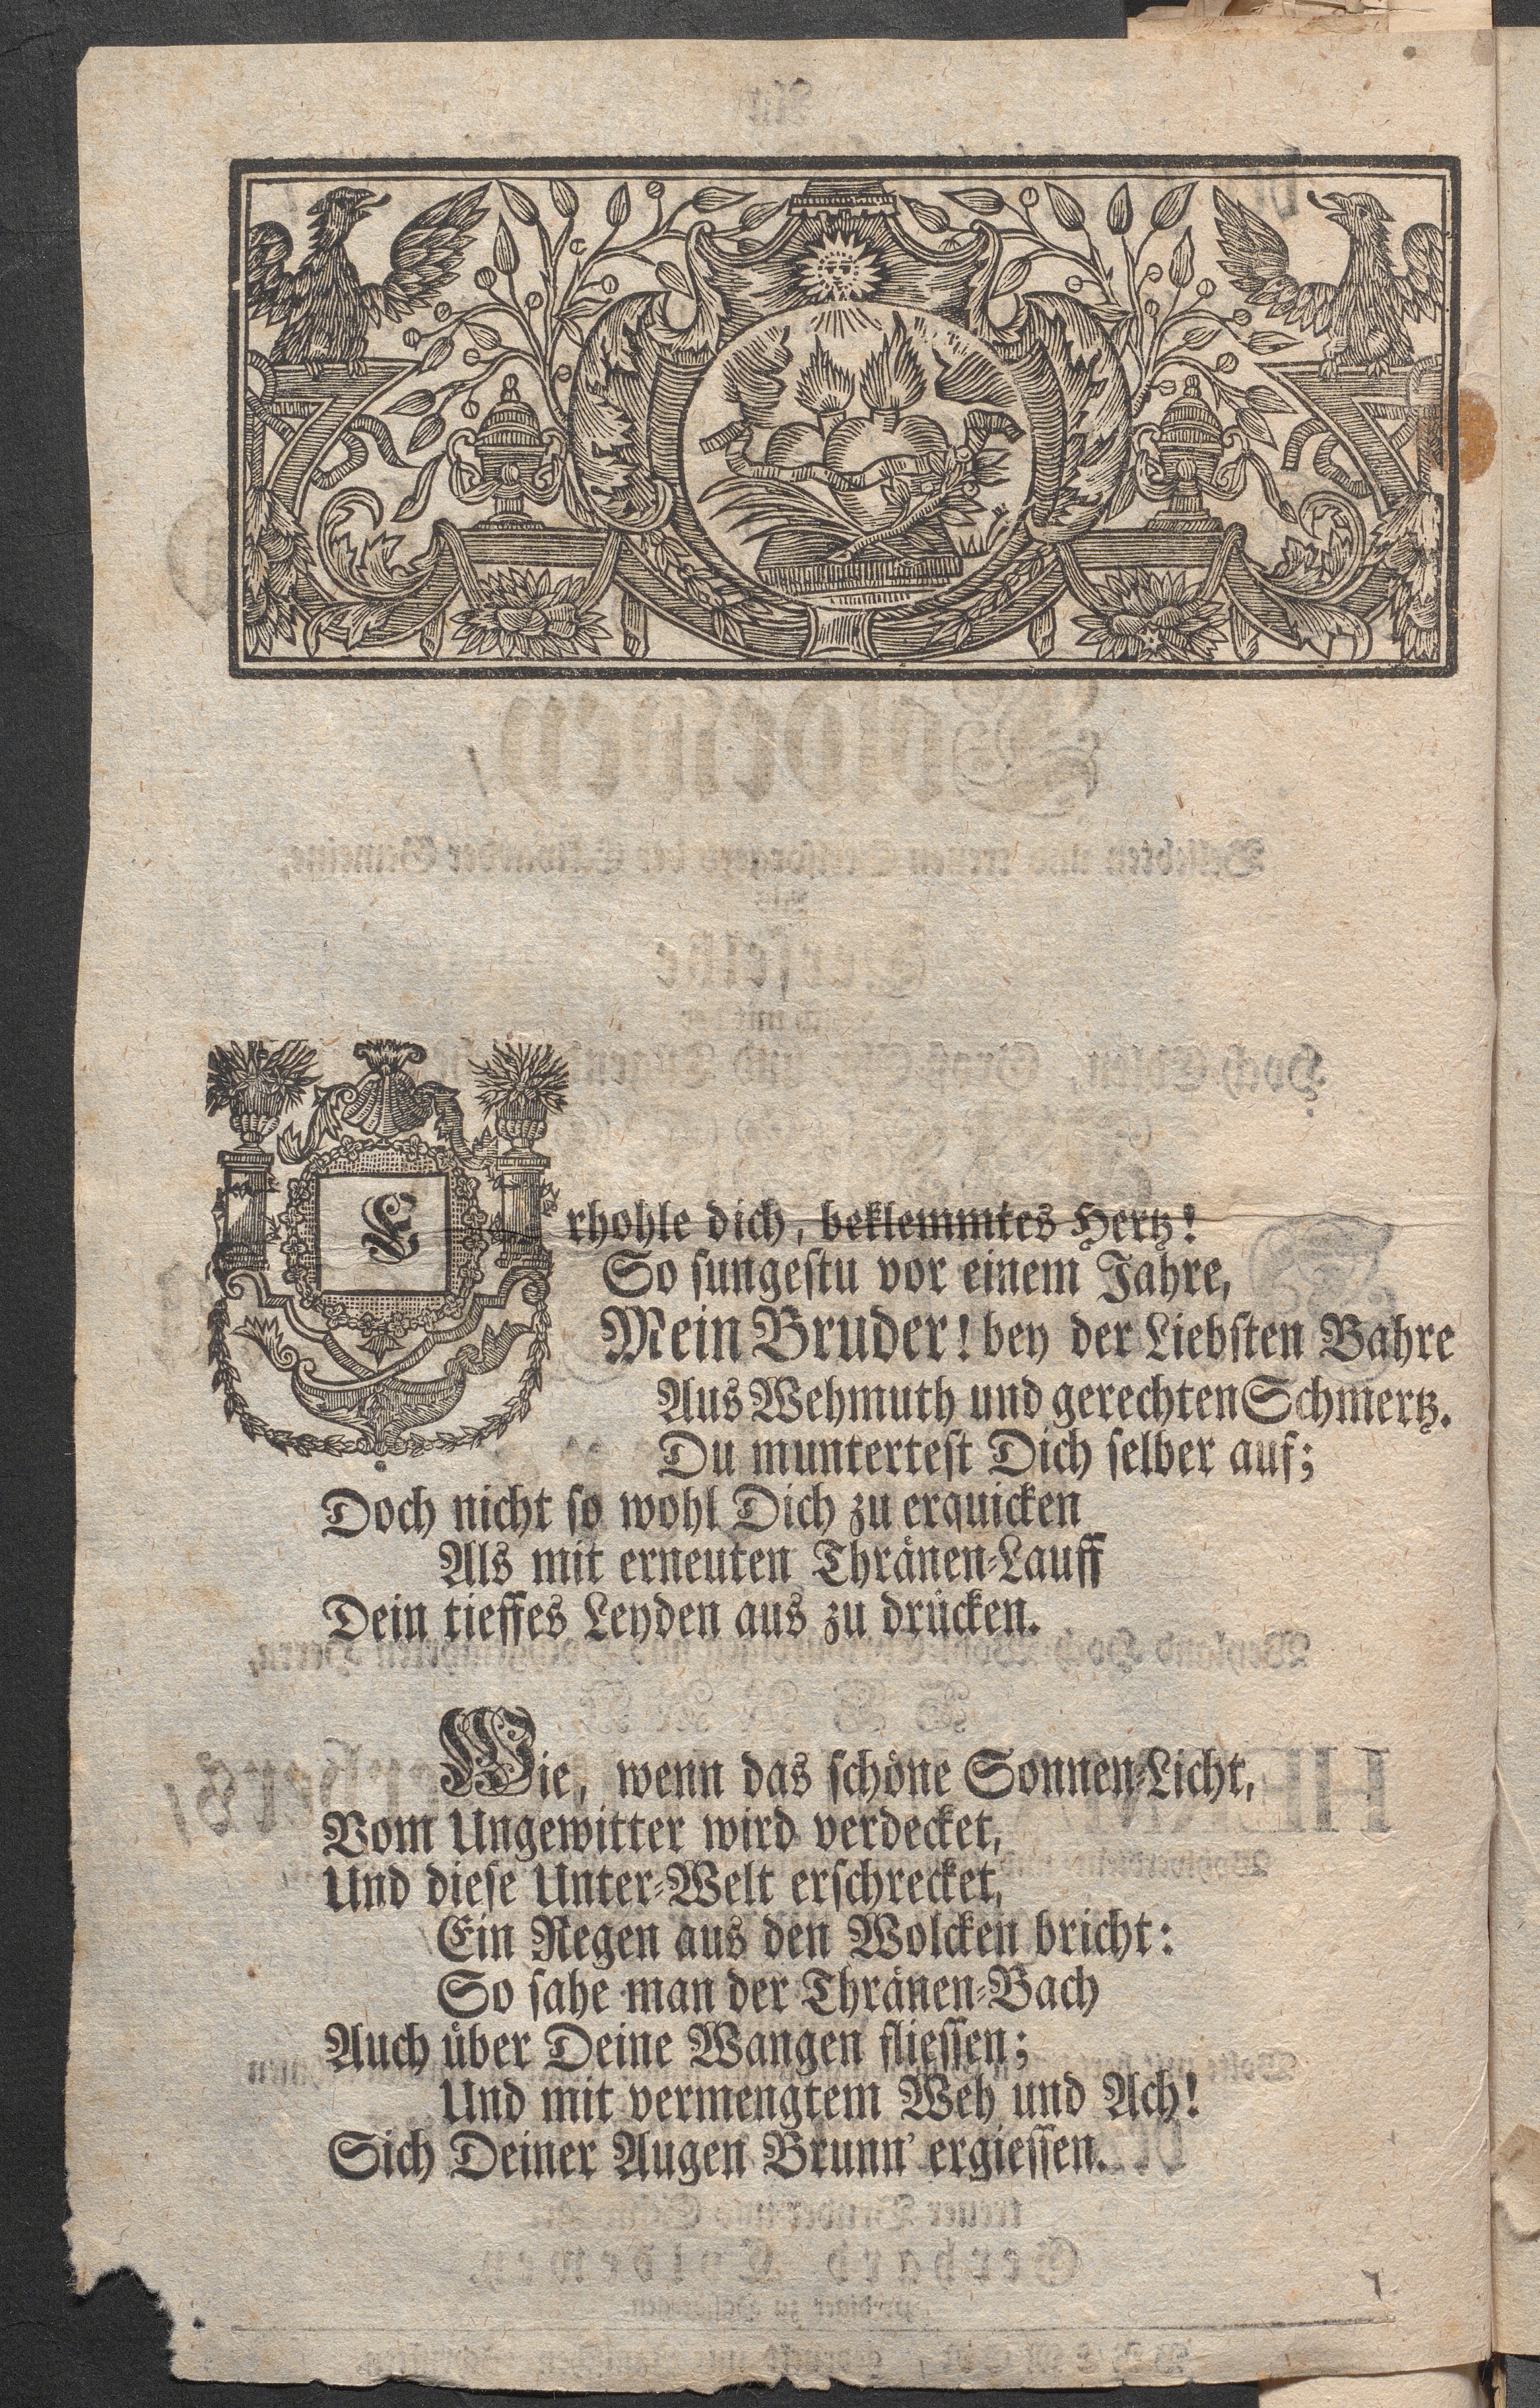 Erhohle dich, beklemmtes Hertz!
So sungestu vor einem Jahre,
Mein Bruder! bey der Liebsten Bahre
Aus Wehmuth und gerechten Schmertz.
Du muntertest Dich selber auf;
Doch nicht so wohl Dich zu erquicken
Als mit erneuten Thränen-Lauff
Dein tieffes Leyden aus zu drücken.
Wie, wenn das schöne Sonnen-Licht,
Vom Ungewitter wird verdecket,
Und diese Unter-Welt erschrecket,
Ein Regen aus den Wolcken bricht:
So sahe man der Thränen-Bach
Auch über Deine Wangen fliessen;
Und mit vermengtem Weh und Ach!
Sich Deiner Augen Brunn' ergiessen.